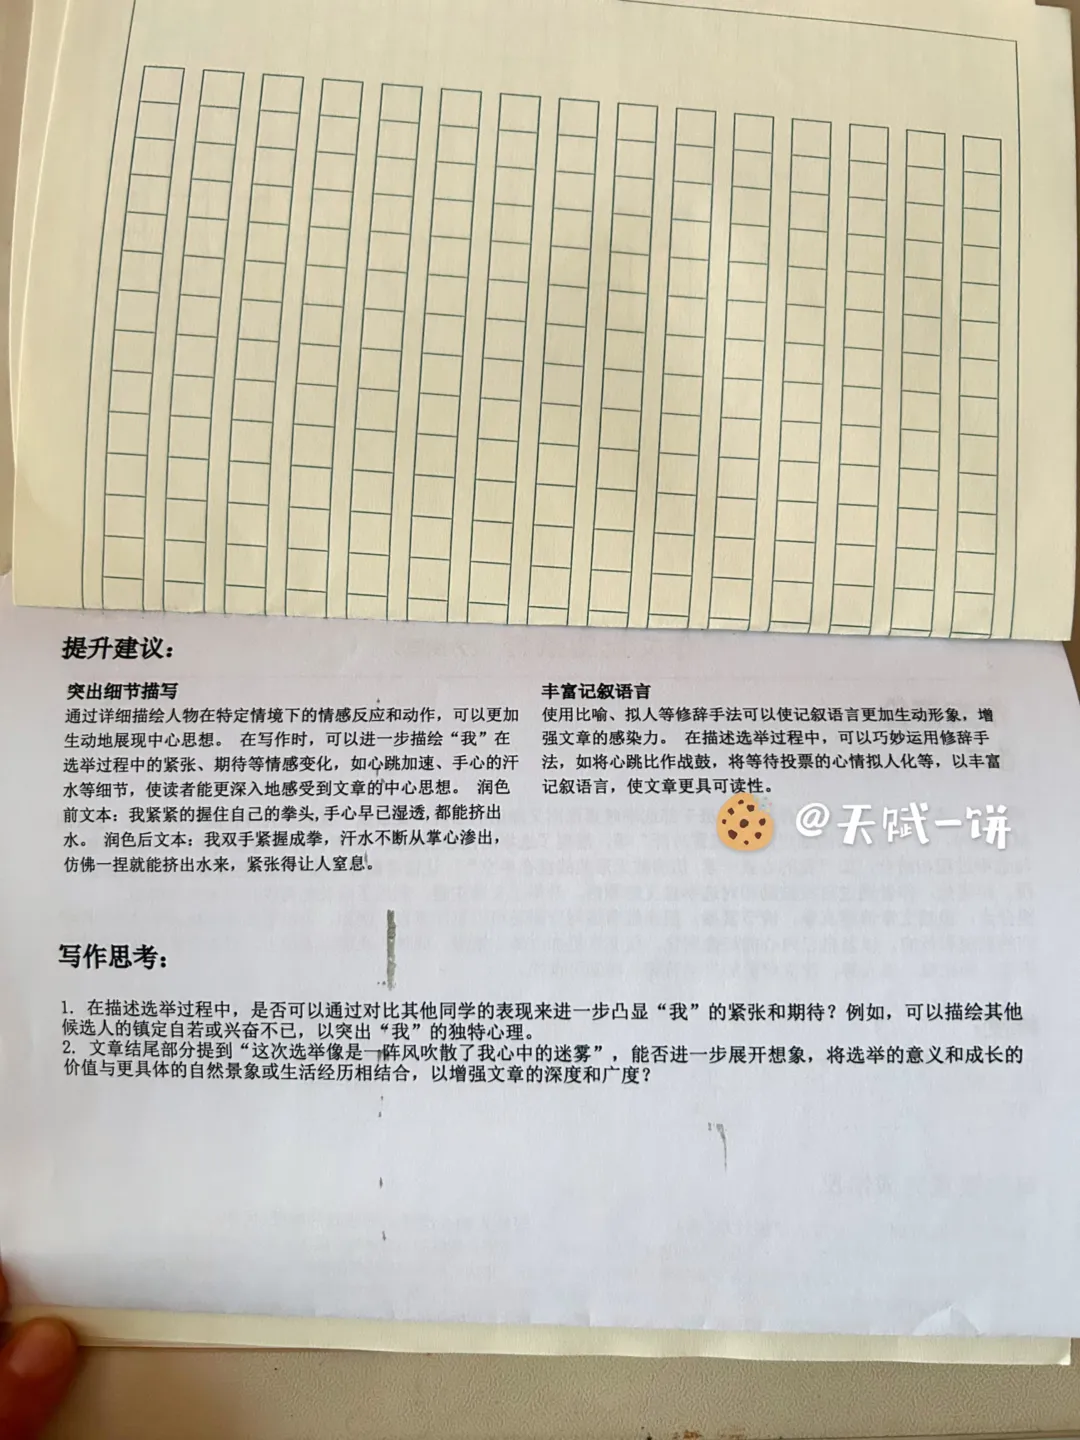 提升建议：
突出细节描写
通过详细描绘人物在特定情境下的情感反应和动作，可以更加
生动地展现中心思想。 在写作时，可以进一步描绘“我”在
选举过程中的紧张、期待等情感变化，如心跳加速、手心的汗
水等细节，使读者能更深入地感受到文章的中心思想。 润色
前文本：我紧紧的握住自己的拳头,手心早已湿透,都能挤出
水。 润色后文本：我双手紧握成拳，汗水不断从掌心渗出，
仿佛一捏就能挤出水来，紧张得让人窒息。
丰富记叙语言
使用比喻、拟人等修辞手法可以使记叙语言更加生动形象，增
强文章的感染力。 在描述选举过程中，可以巧妙运用修辞手
法，如将心跳比作战鼓，将等待投票的心情拟人化等，以丰富
记叙语言，使文章更具可读性。
@天赋一饼
写作思考：
1. 在描述选举过程中，是否可以通过对比其他同学的表现来进一步凸显“我”的紧张和期待？例如，可以描绘其他
候选人的镇定自若或兴奋不已，以突出“我”的独特心理。
2. 文章结尾部分提到“这次选举像是一阵风吹散了我心中的迷雾”，能否进一步展开想象，将选举的意义和成长的
价值与更具体的自然景象或生活经历相结合，以增强文章的深度和广度？